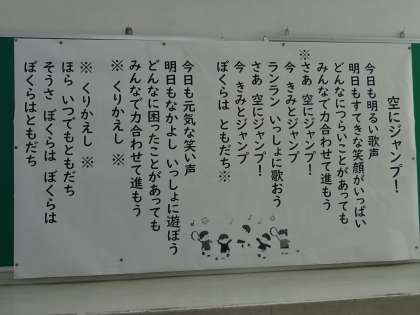 空にジャンプ！
今日も明るい歌声
明日もすてきな笑顔がいっぱい
どんなにつらいことがあっても
みんなで力合わせて進もう
※さあ 空にジャンプ！
今 きみとジャンプ
ランラン いっしょに歌おう
さあ 空にジャンプ！
今 きみとジャンプ
ぼくらは ともだち※
今日も元気な笑い声
明日もなかよし いっしょに遊ぼう
どんなに困ったことがあっても
みんなで力合わせて進もう
※ くりかえし ※
※ くりかえし ※
ほら いつでもともだち
そうさ ぼくらは ぼくらは
ぼくらはともだち